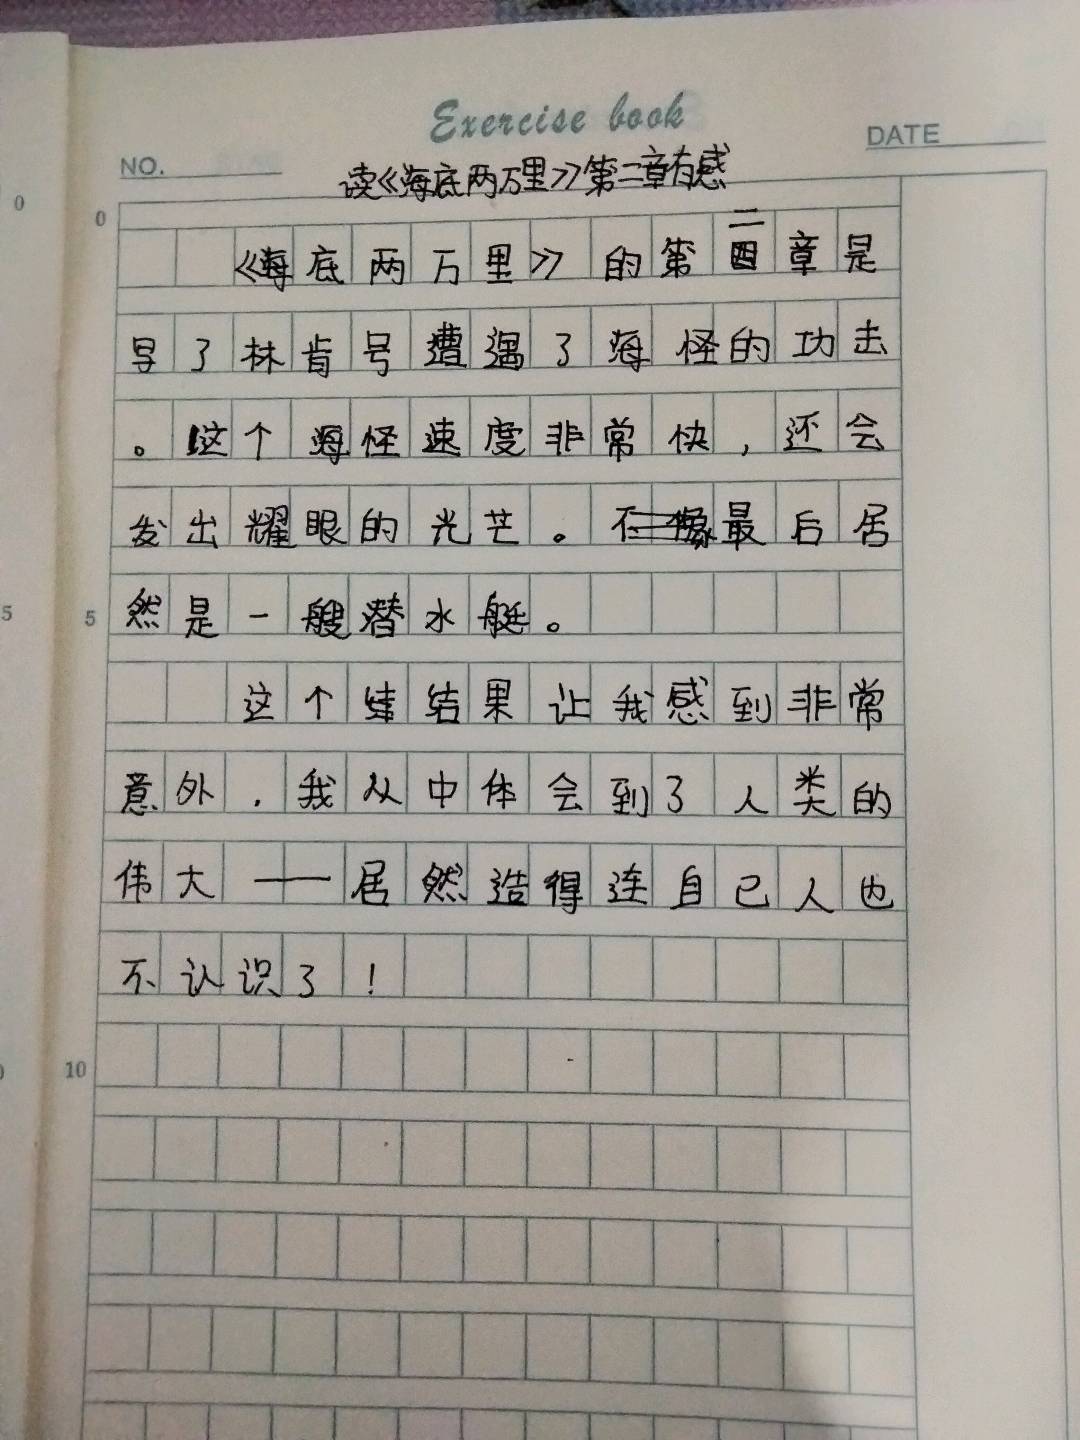 Exercise book
NO.
DATE
读《海底两万里》第二章有感
0
0
《海底两万里》的第二章是
导了林肯号遭遇了海怪的功击
。这个海怪速度非常快,还会
发出耀眼的光芒。最后居
然是一艘潜水艇。
5
5
这个结果让我感到非常
意外,我从中体会到了人类的
伟大——居然造得连自己人也
不认识了!
10